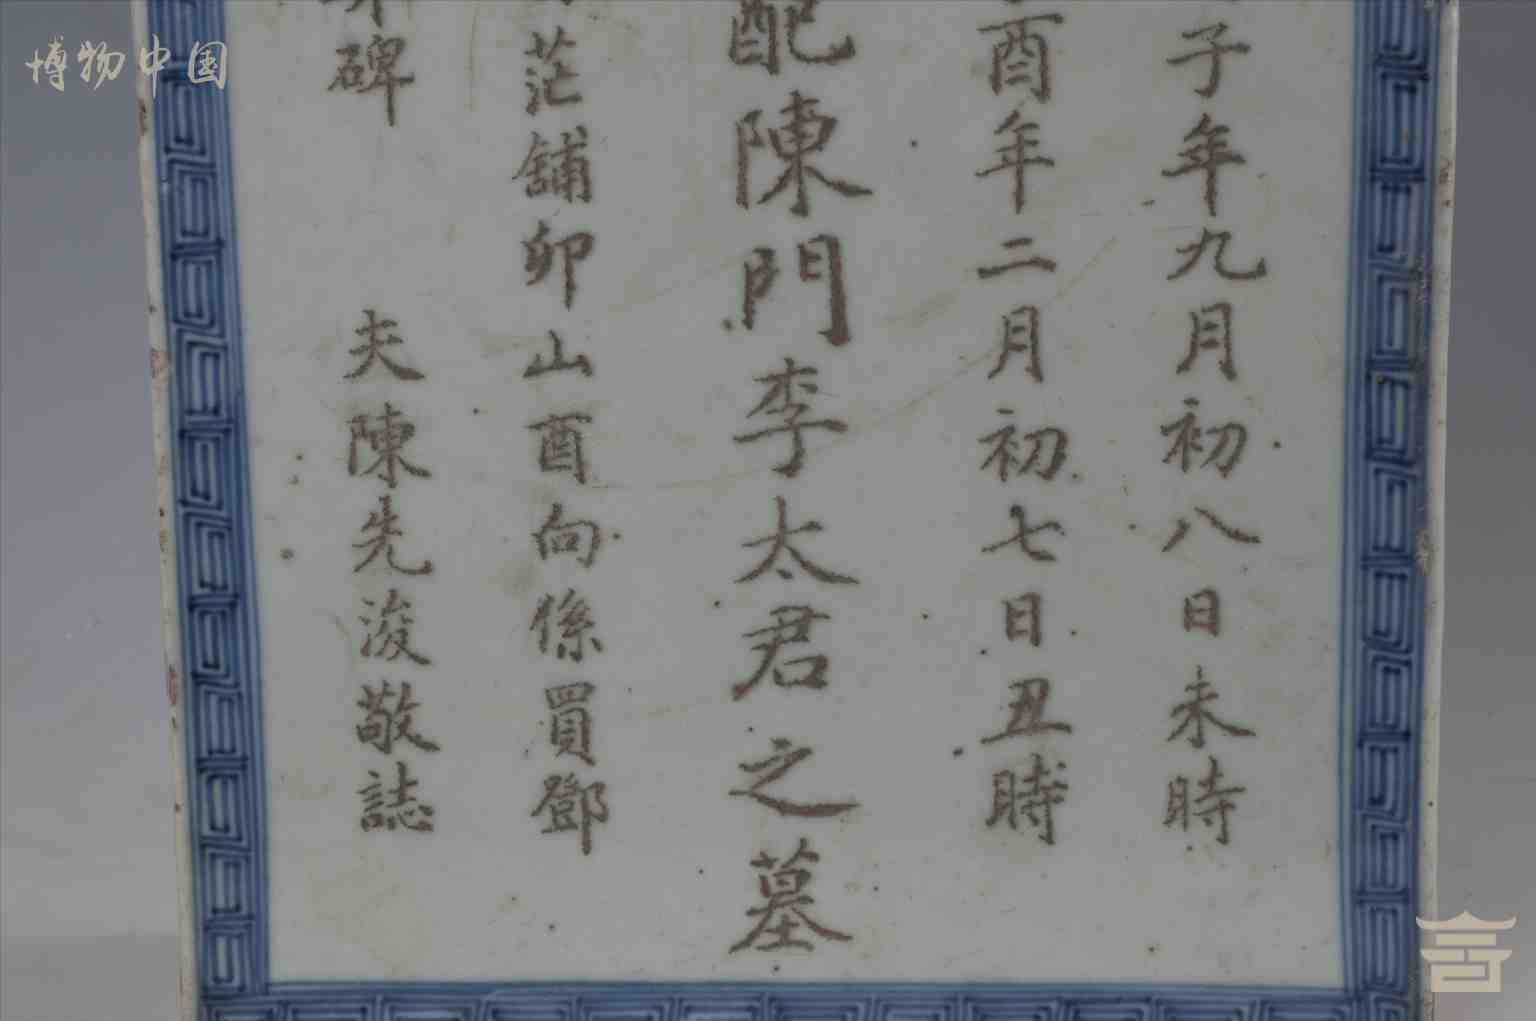 子年九月初八日未時
酉年二月初七日丑時
配陳門李太君之墓
茫舖卯山酉向係買鄧
碑 夫陳先浚敬誌
博物中国